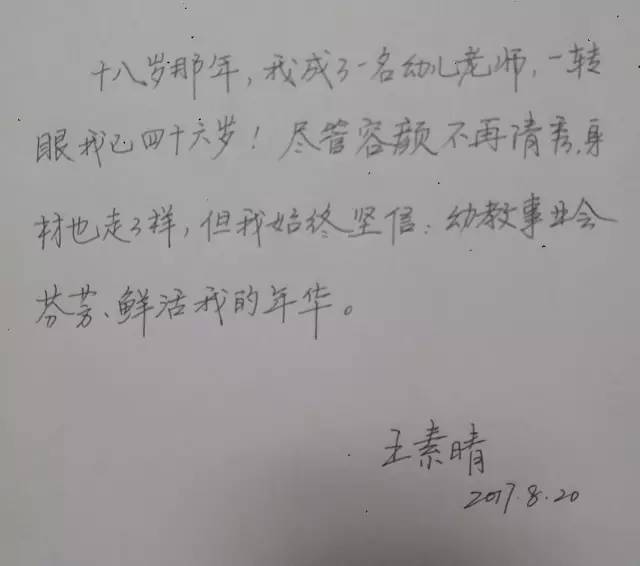 十八岁那年，我成了一名幼儿老师，一转
眼我已四十六岁！尽管容颜不再清秀，身
材也走了样，但我始终坚信：幼教事业会
芬芳、鲜活我的年华。
王素晴
2017.8.20